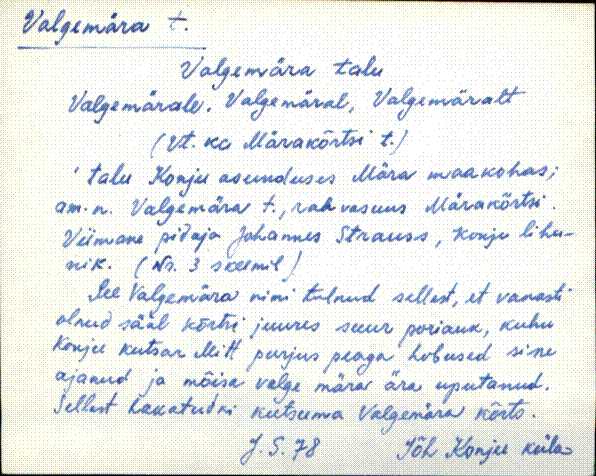 Valgemära t.
Valgemära talu
Valgemärale, Valgemäral, Valgemäralt
(Vt. ka Märakõrtsi t.)
talu Konju asunduses Mära maakohas;
am. n. Valgemära t., rahvasuus Märakõrtsi.
Viimane pidaja Johannes Strauss, Konju lihu-
nik. (Nr. 3 skeemil)
See Valgemära nimi tulnud sellest, et vanasti
olnud sääl kõrtsi juures suur poriauk, kuhu
Konju kutsar Mitt purjus peaga hobused sisse
ajanud ja mõisa valge mära ära uputanud.
Sellest hakatudki kutsuma Valgemära kõrts.
J. S. 78 Jõh Konju küla